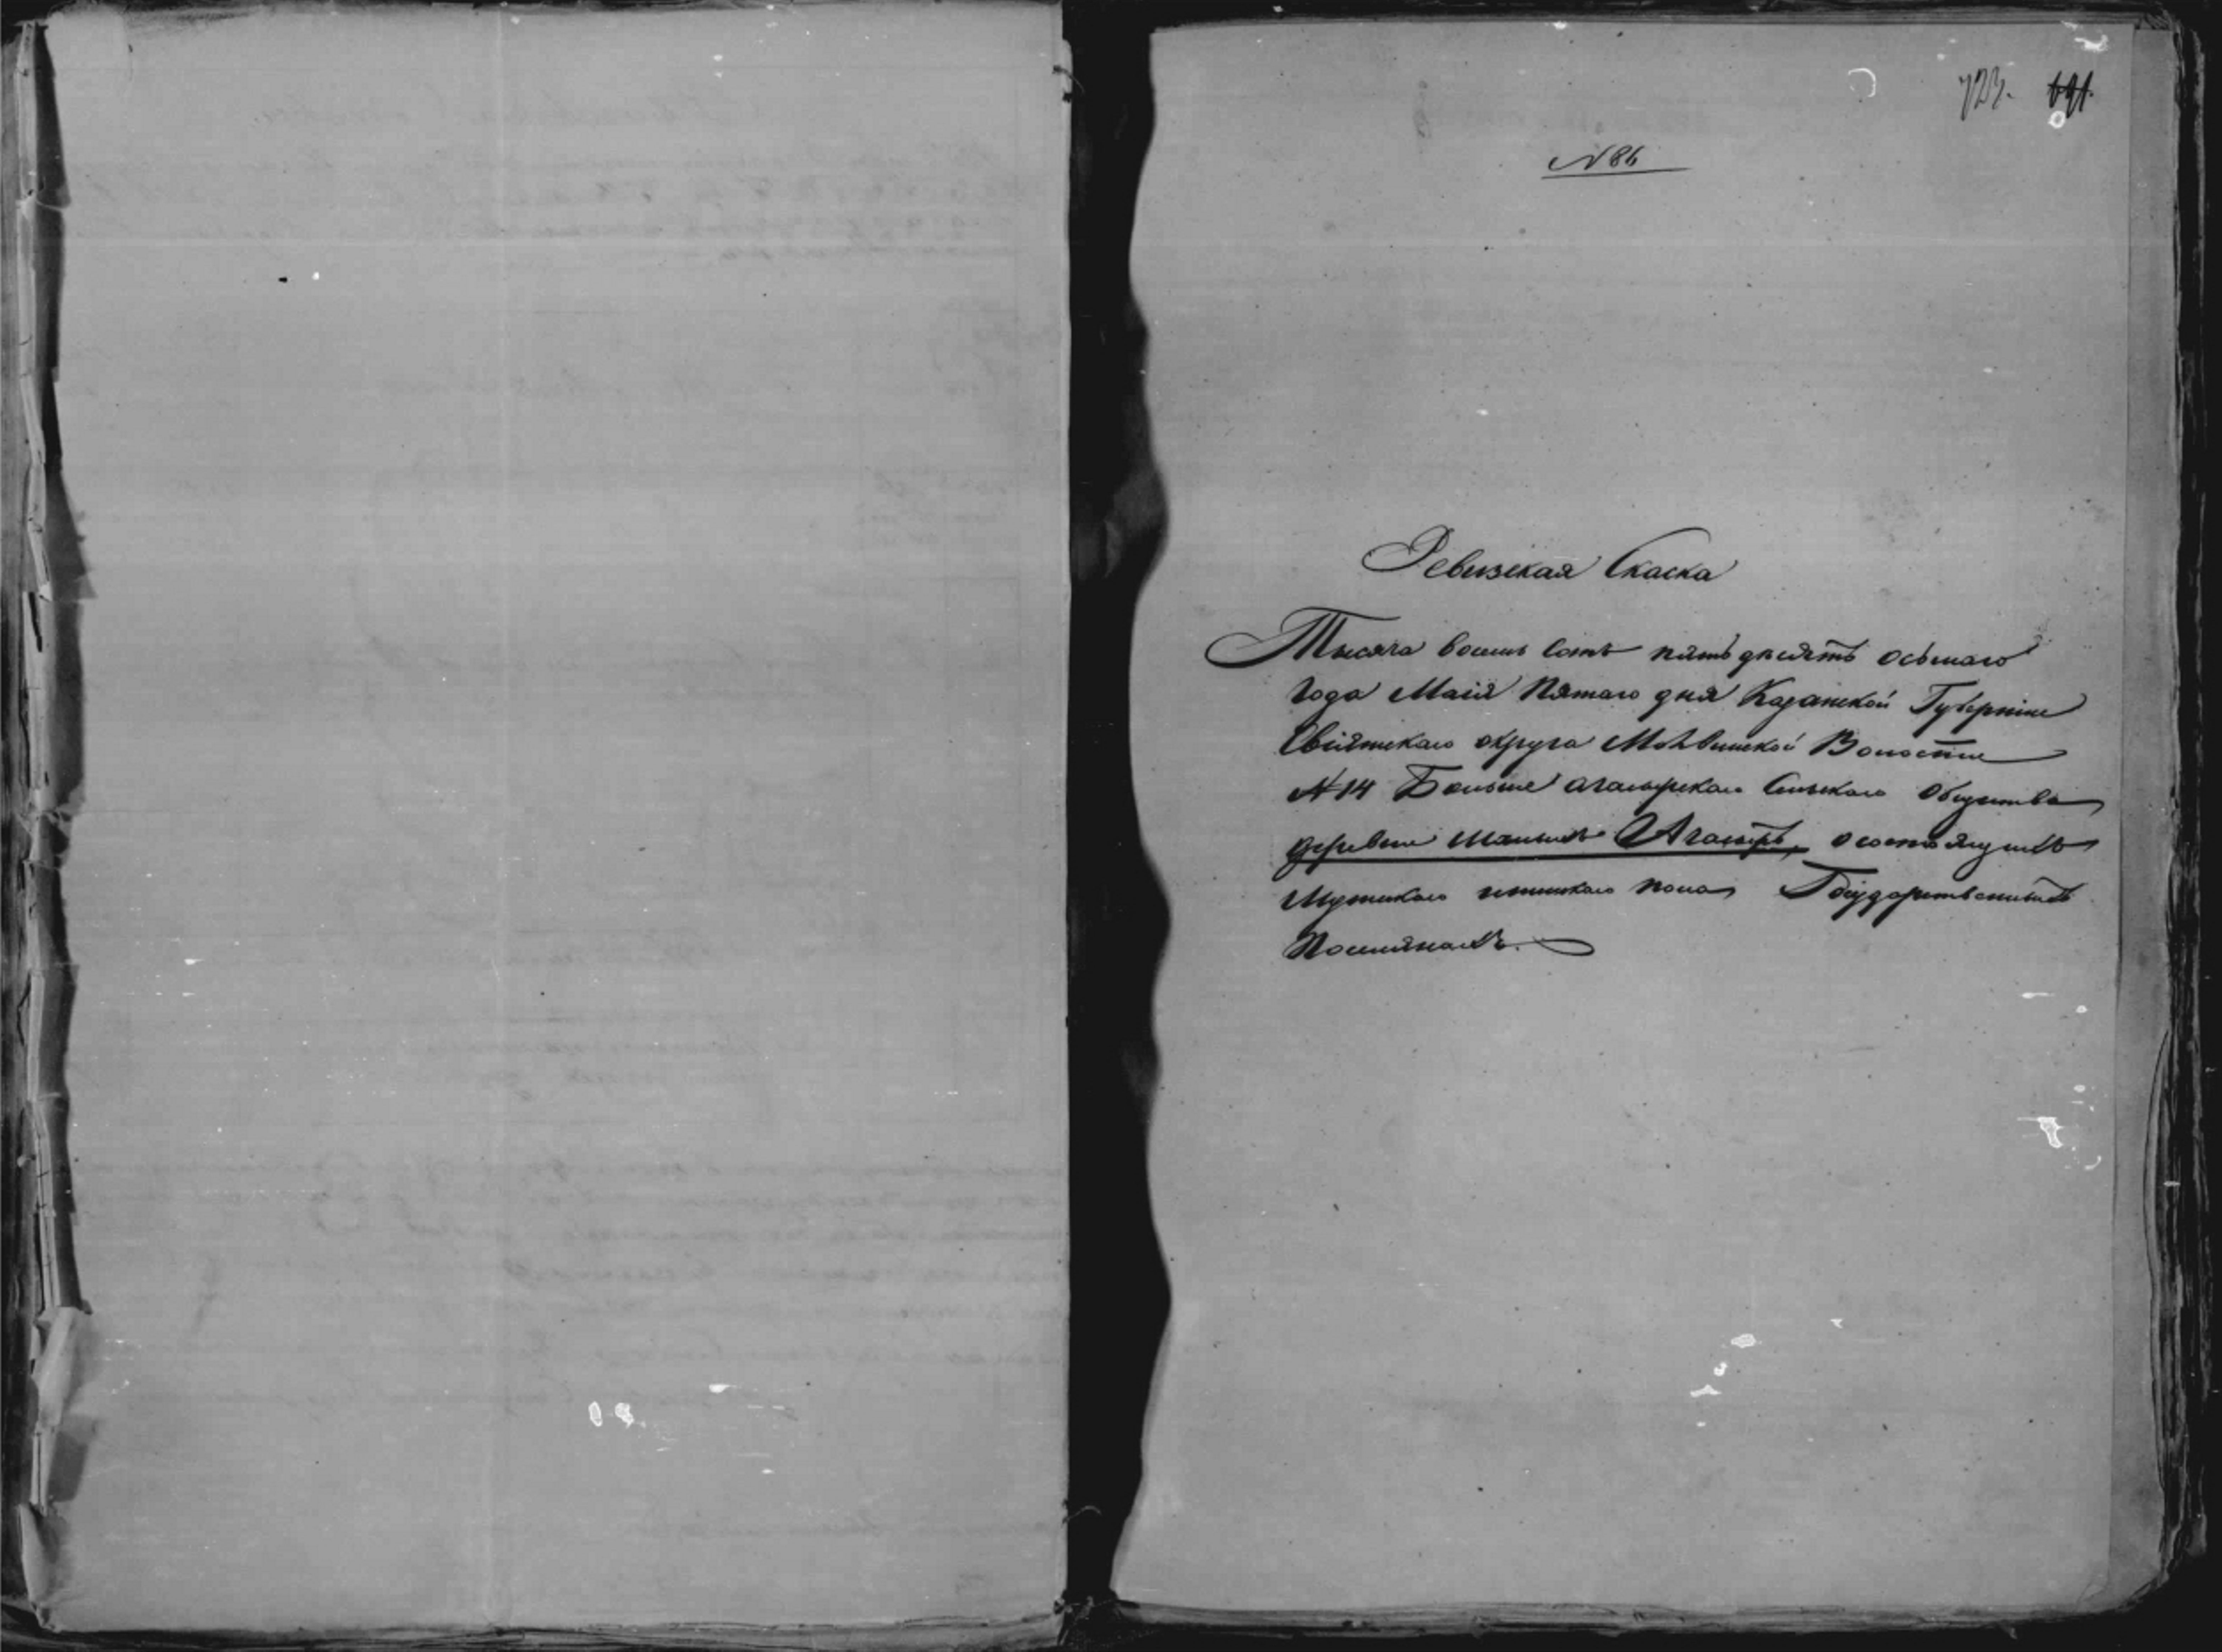 723. 691.
N 86
Ревизская Скаска
Тысяча восемь сотъ пятьдесятъ осьмаго
года Маія пятаго дня Казанской Губерніи
Свіяжскаго округа Волости
N 14 Больше Сельскаго Общества
деревни о состоящихъ
Мужескаго женскаго пола Государственныхъ
Поселянахъ.